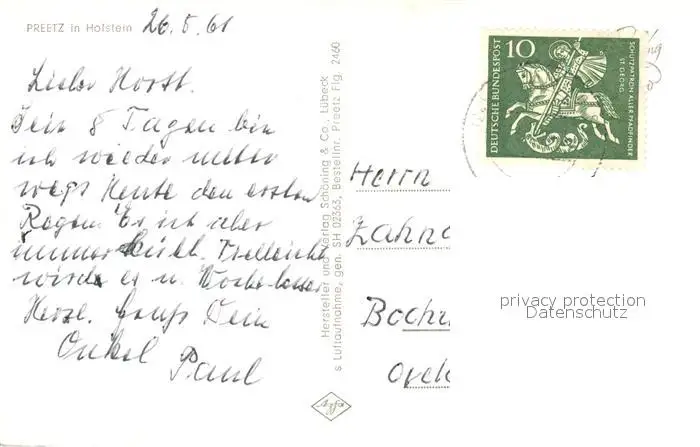 PREETZ in Holstein
26.5.61
Lieber Horst.
Seit 8 Tagen bin
ich wieder unter
wegs Heute den ersten
Regen. Es ist aber
immer kühl. Vielleicht
wird es n. Woche besser
Herzl. Gruß Dein
Onkel
Paul
Hersteller und Verlag Schöning & Co., Lübeck
s Luftaufnahme, gen. SH 02363, Bestellnr. Preetz Flg. 2460
Agfa
10
DEUTSCHE BUNDESPOST
SCHUTZPATRON ALLER PFADFINDER
ST. GEORG
Herrn
Zahna
Bochu
privacy protection
Datenschutz